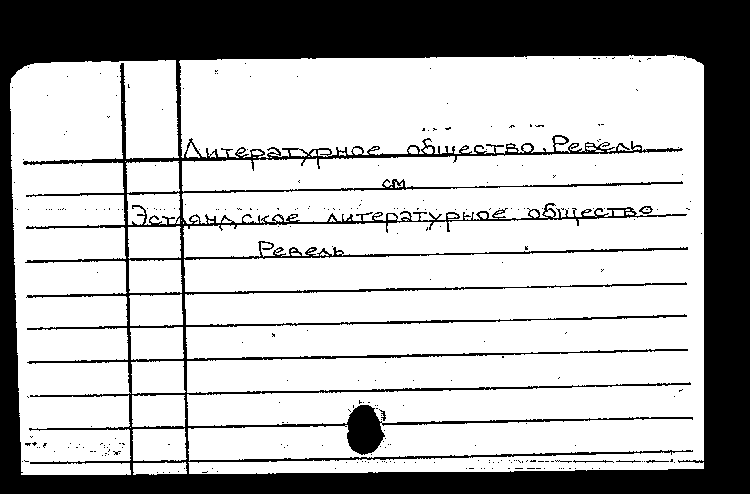 Литературное общество. Ревель
см.
Эстляндское литературное общество
Ревель